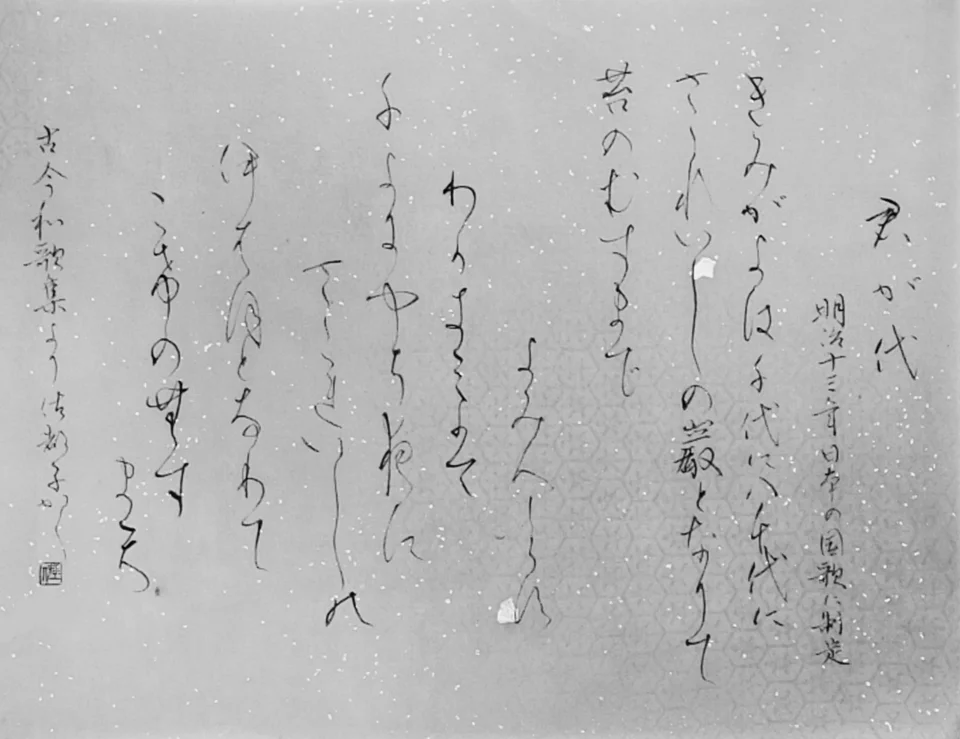 君が代
明治十三年日本の国歌に制定
きみがよは千代に八千代に
さゝれいしの巌となりて
苔のむすまで
よみ人しらす
わかきみは
千よにやちよに
さゝれいしの
伊はほとなりて
こけの無す
まて
古今和歌集より 佳都子かく